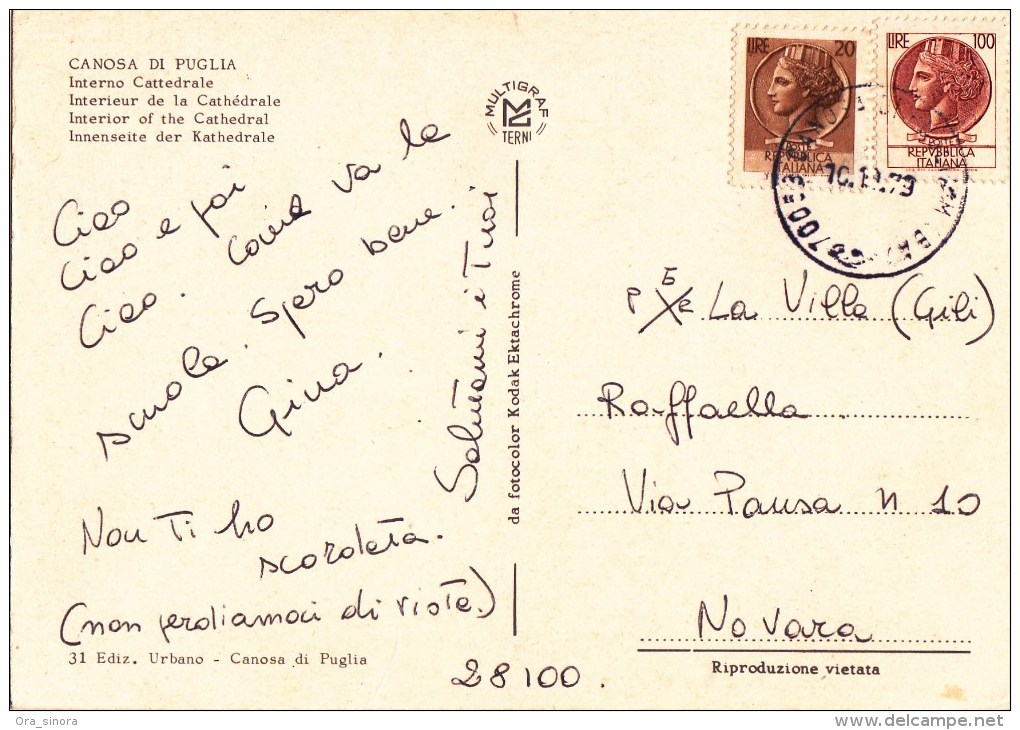 CANOSA DI PUGLIA
Interno Cattedrale
Interieur de la Cathédrale
Interior of the Cathedral
Innenseite der Kathedrale
MULTIGRAF
TERNI
LIRE 20
POSTE
REPVBBLICA
ITALIANA
LIRE 100
POSTE
REPVBBLICA
ITALIANA
70053
Ciao
Ciao e poi
Ciao. Come va la
scuola. Spero bene.
Gina.
Salutami i Tuoi
Non Ti ho
scordata.
(non perdiamoci di vista.)
31 Ediz. Urbano - Canosa di Puglia
28100.
da fotocolor Kodak Ektachrome
La Villa (Gili)
Raffaella
Via Pansa n 10
Novara
Riproduzione vietata
Ora_sinora
delcampe.net